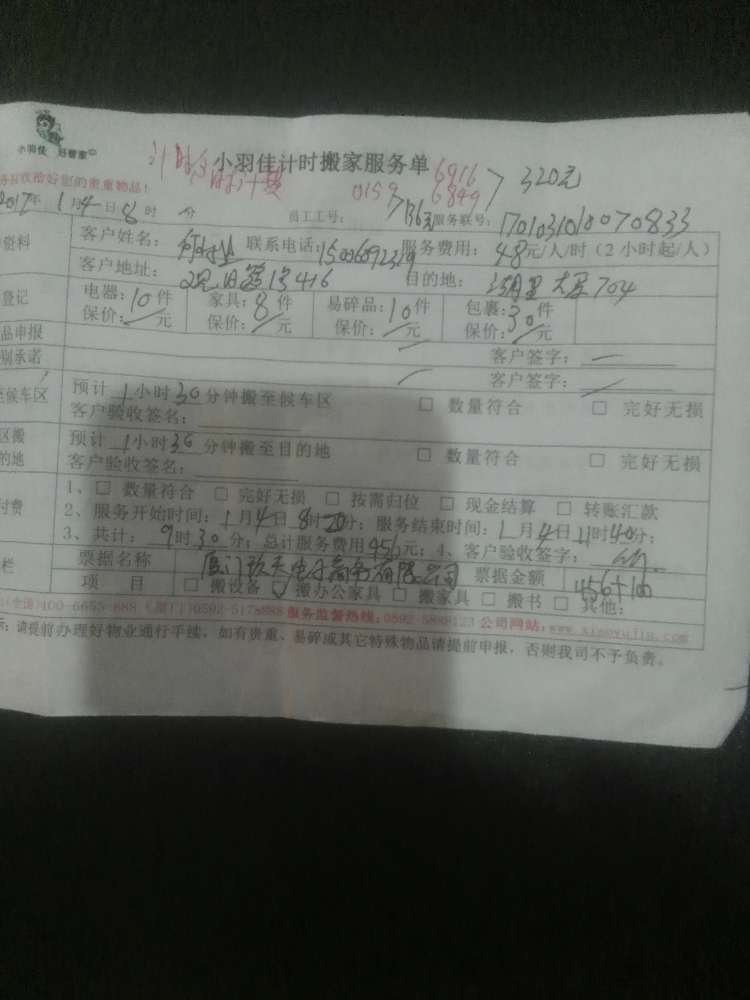 小羽佳 好管家
计时 小羽佳计时搬家服务单 6916 320元
请保管好您的贵重物品!
0159 6849
2017年1月4日8时 分 员工工号: 136元 服务联号: 17010310100070833
资料 客户姓名: 联系电话: 服务费用: 48元/人/时(2小时起/人)
客户地址: 416 目的地: 大厦704
登记 电器:10件 家具:8件 易碎品:10件 包裹:30件
保价: 元 保价: 元 保价: 元 保价: 元
品申报 客户签字:
别承诺 客户签字:
至候车区 预计1小时30分钟搬至候车区 □ 数量符合 □ 完好无损
客户验收签名:
区搬 预计1小时30分钟搬至目的地 □ 数量符合 □ 完好无损
的地 客户验收签名:
1、□ 数量符合 □ 完好无损 □ 按需归位 □ 现金结算 □ 转账汇款
付费 2、服务开始时间:1月4日8时20分;服务结束时间:1月4日11时40分;
3、共计:9时30分;总计服务费用456元;4、客户验收签字:
栏 票据名称 厦门 电子商务有限公司 票据金额 456+100
项 目 □ 搬设备 □ 搬办公家具 □ 搬家具 □ 搬书 □ 其他:
400-6655-888 (厦门)0592-5178888 服务监督热线:0592-5880123 公司网站:www.xiaoyujia.com
示:请提前办理好物业通行手续,如有贵重、易碎或其它特殊物品请提前申报,否则我司不予负责。